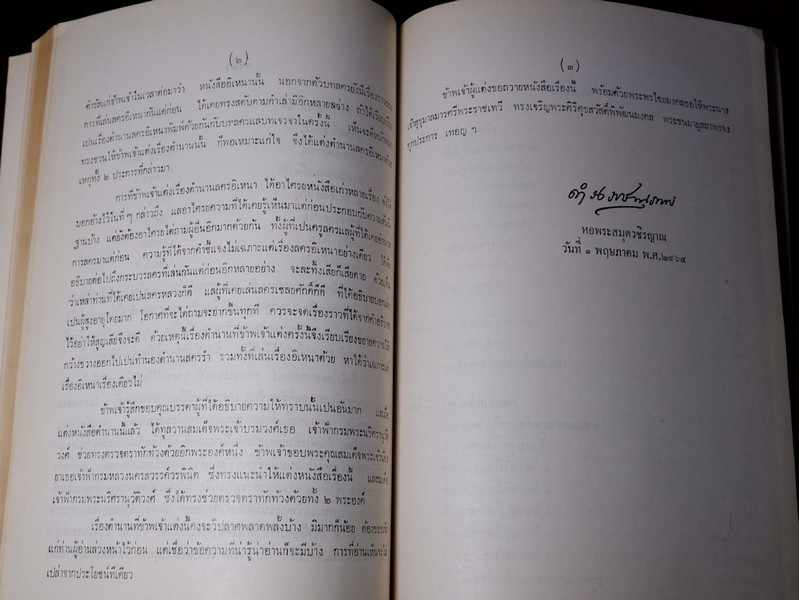 (๒)
ดำรัสแก่ข้าพเจ้าในเวลาต่อมาว่า หนังสืออิเหนานั้น นอกจากตัวบทลครยังมีเรื่องราว
การที่เล่นลครอิเหนากันแต่ก่อน ได้เคยทรงสดับตามคำเล่ามีอีกหลายอย่าง ถ้าได้เรียบเรียง
เป็นเรื่องตำนานลครอิเหนาพิมพ์ด้วยกันกับบทลครแลบทเจรจาในครั้งนี้ เห็นจะดี
ทรงชวนให้ข้าพเจ้าแต่งเรื่องตำนานนั้น ก็พอเหมาะแก่ใจ จึงได้แต่งตำนานลครอิเหนา
เหตุทั้ง ๒ ประการที่กล่าวมา
การที่ข้าพเจ้าแต่งเรื่องตำนานลครอิเหนา ได้อาไศรยหนังสือเก่าหลายเรื่อง ดัง
บอกอ้างไว้ในที่ๆ กล่าวถึง แลอาไศรยความที่ได้เคยรู้เห็นมาแต่ก่อนประกอบกับความ
ฐานบ้าง แต่ยังต้องอาไศรยไต่ถามผู้อื่นอีกมากด้วยกัน ทั้งผู้ที่เป็นครูลครแลผู้ที่ได้เคย
การลครมาแต่ก่อน ความรู้ที่ได้จากคำชี้แจงไม่เฉพาะแต่เรื่องลครอิเหนาอย่างเดียว ได้
อธิบายต่อไปถึงกระบวรลครที่เล่นกันแต่ก่อนอีกหลายอย่าง จะละทิ้งเสียก็เสียดาย ด้วย
ว่าเหล่าท่านที่ได้เคยเป็นลครหลวงก็ดี แลผู้ที่เคยเล่นลครเชลยศักดิ์ก็ดี ที่ได้อธิบายบอก
เป็นผู้สูงอายุโดยมาก โอกาศที่จะไต่ถามจะยากขึ้นทุกที ควรจะจดเรื่องราวที่ได้จากคำ
ไว้อย่าให้สูญเสียจึงจะดี ด้วยเหตุนี้เรื่องตำนานที่ข้าพเจ้าแต่งครั้งนี้จึงเรียบเรียงขยายความ
กว้างขวางออกไปเป็นทำนองตำนานลครรำ รวมทั้งที่เล่นเรื่องอิเหนาด้วย หาได้ว่าเฉพาะ
เรื่องอิเหนาเรื่องเดียวไม่
ข้าพเจ้ารู้สึกขอบคุณบรรดาผู้ที่ได้อธิบายความให้ทราบนั้นเป็นอันมาก แลเมื่อ
แต่งหนังสือตำนานนี้แล้ว ได้ทูลวานสมเด็จพระเจ้าบรมวงศ์เธอ เจ้าฟ้ากรมพระนริศรานุวัติ
วงศ์ ช่วยทรงตรวจตราทักท้วงด้วยอีกพระองค์หนึ่ง ข้าพเจ้าขอบพระคุณสมเด็จพระเจ้า
ยาเธอเจ้าฟ้ากรมหลวงนครสวรรค์วรพินิต ซึ่งทรงแนะนำให้แต่งหนังสือเรื่องนี้ แลสมเด็จ
เจ้าฟ้ากรมพระนริศรานุวัติวงศ์ ซึ่งได้ทรงช่วยตรวจตราทักท้วงด้วยทั้ง ๒ พระองค์
เรื่องตำนานที่ข้าพเจ้าแต่งนี้คงจะวิปลาศพลาดพลั้งบ้าง มิมากก็น้อย ต้องขอ
แก่ท่านผู้อ่านล่วงหน้าไว้ก่อน แต่เชื่อว่าข้อความที่น่ารู้น่าอ่านก็จะมีบ้าง การที่อ่านเห็นจะไม่
เปล่าจากประโยชน์ทีเดียว
(๓)
ข้าพเจ้าผู้แต่งขอถวายหนังสือเรื่องนี้ พร้อมด้วยพระพรไชยมงคลขอให้พระนาง
เจ้าสุขุมาลมารศรีพระราชเทวี ทรงเจริญพระศิริศุขสวัสดิ์พิพัฒนมงคล พระชนมายุสถาพรจง
ทุกประการ เทอญ ฯ
ดำรงราชานุภาพ
หอพระสมุดวชิรญาณ
วันที่ ๑ พฤษภาคม พ.ศ.๒๔๖๔